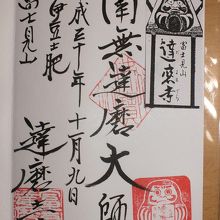 富士見山
達磨寺
南無達磨大師
平成三十年十一月九日
伊豆土肥
富士見山
達磨寺